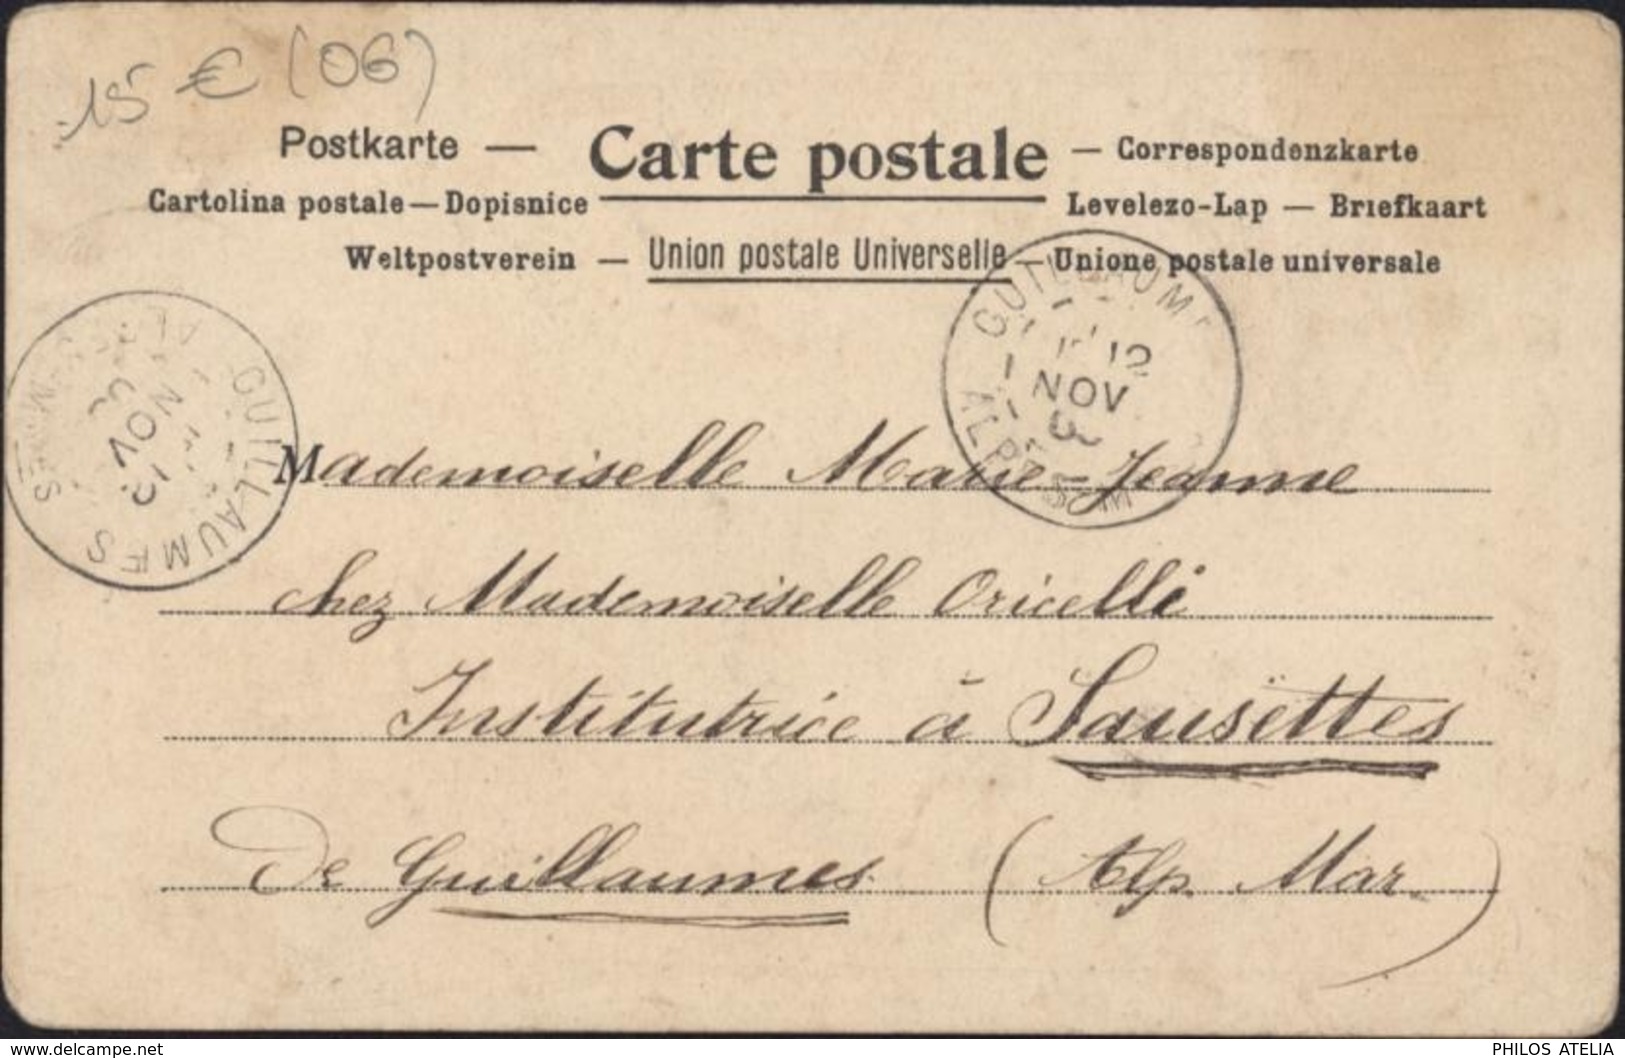 15 € (06)
Postkarte — Carte postale — Correspondenzkarte
Cartolina postale — Dopisnice Levelezo-Lap — Briefkaart
Weltpostverein — Union postale Universelle — Unione postale universale
GUILLAUMES
12
NOV
ALPES
GUILLAUMES
12
NOV
Mademoiselle Marie-Jeanne
chez Mademoiselle Oricelli
Institutrice à Sausëttes
De Guillaumes (Alp. Mar.)
www.delcampe.net
PHILOS ATELIA